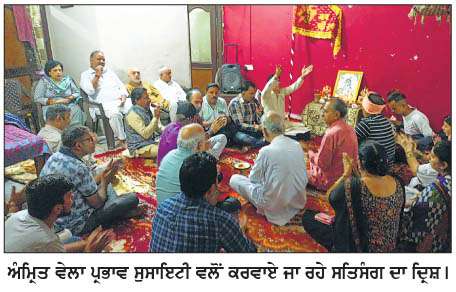 ਅੰਮ੍ਰਿਤ ਵੇਲਾ ਪ੍ਰਭਾਵ ਸੁਸਾਇਟੀ ਵਲੋਂ ਕਰਵਾਏ ਜਾ ਰਹੇ ਸਤਿਸੰਗ ਦਾ ਦ੍ਰਿਸ਼।